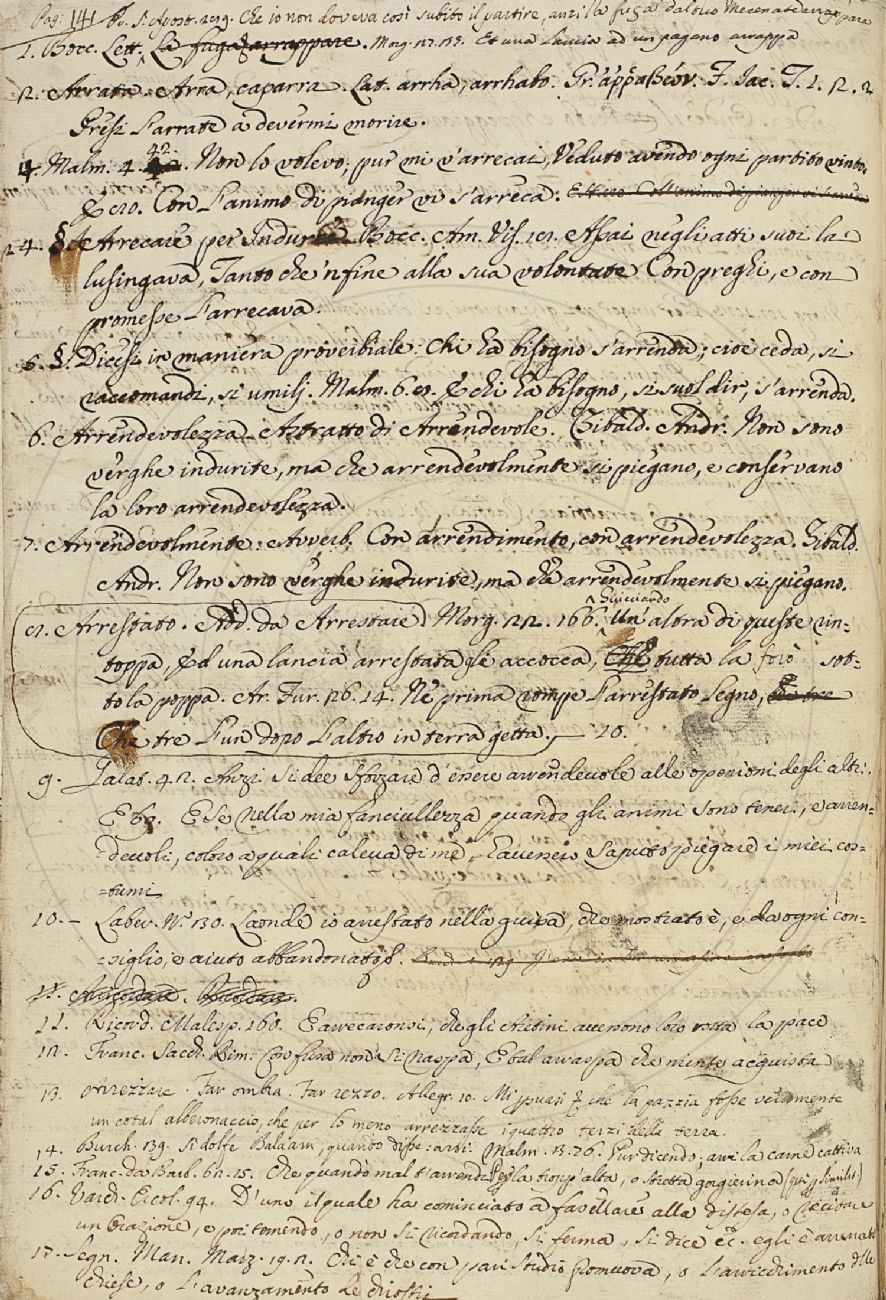 Pag: 141 Che io non doveva così subito il partire, anzi la fuga dal tuo Mecenate arrappare
1. Bocc. Lett. La fuga arrappare. Morg. Et una lancia ad un pagano arrappa
2. Arrata. Arra, caparra. Lat. arrha, arrhabo. Gr. ἀῤῥαβών. F. Iac. T. 1. 12. 2
Presi l'arrate a devermi morire.
4. Malm. 4. 42. Non lo volevo; pur mi v'arrecai, Veduto avendo ogni partito vinto.
E 10. Con l'animo di pianger vi s'arreca.
24. §. Arrecare per Indurre Bocc. Am. Vis. Assai negli atti suoi la
lusingava, Tanto che 'nfine alla sua volontate Con preghi, e con
promesse l'arrecava.
6. §. Dicesi in maniera proverbiale: Chi ha bisogno s'arrenda; cioè ceda, si
raccomandi, si umilj. Malm. 6. E chi ha bisogno, si suol dir, s'arrenda.
6. Arrendevolezza. Astratto di Arrendevole. Zibald. Andr. Non sono
verghe indurite, ma che arrendevolmente si piegano, e conservano
la loro arrendevolezza.
7. Arrendevolmente. Avverb. Con arrendimento, con arrendevolezza. Zibald.
Andr. Non sono verghe indurite, ma che arrendevolmente si piegano.
Arrestato. Add. da Arrestare Morg. 22. 166. Un altra di queste in-
toppa, Ed una lancia arrestata gli accocca, Che tutta la forò sot-
to la poppa. Ar. Fur. 26. 14. Nè prima rompe l'arrestato legno,
Che tre l'un dopo l'altro in terra getta. 10.
9. Galat. 42. Anzi si dee sforzare d'essere arrendevole alle openioni degli altri.
E 69. E se nella mia fanciullezza quando gli animi sono teneri, e arren-
devoli, coloro a quali caleva di me, avessero saputo piegare i miei cos-
tumi
10. Laber. N.º 130. Laonde io arrestato nella guisa, che mostrato è, e da ogni con-
siglio, e aiuto abbandonato.
11. Ricord. Malesp. 160. E arrecaronsi, che gli Aretini avessono loro rotta la pace
12. Franc. Sacch. Rim. Cosa fura non si raspa, E tal arraspa che niente acquista
13. Arrezzare. Far ombra. Far rezzo. Allegr. 10. che la pazzia fosse veramente
un cotal alberonaccio, che per lo meno arrezzasse i quattro terzi della terra.
14. Burch. 139. Si dolse Balaam, quando disse: arri. Malm. Pur dicendo; arri la carne cattiva
15. Franc. da Barb. Che quando mal t'arrendi Per la tropp'alta, o stretta gorgierina
16. Varch. Ercol. 94. D'uno il quale ha cominciato a favellare alla distesa, o recitare
un'Orazione, e poi temendo, o non si ricordando, si ferma, si dice ec. egli è arrenato
17. Segn. Man. Marz. 19. 2. Chi è che con pari studio promuova, o l'arricchimento delle
Chiese, o l'avanzamento de Chiostri